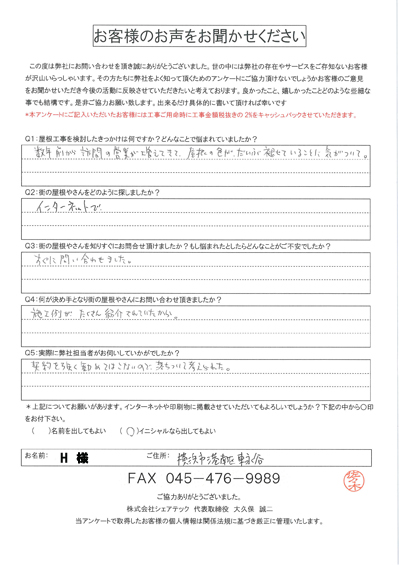 お客様のお声をお聞かせください
この度は弊社にお問い合わせを頂き誠にありがとうございました。世の中には弊社の存在やサービスをご存知ないお客様
が沢山いらっしゃいます。その方たちに弊社をよく知って頂くためのアンケートにご協力頂けないでしょうかお客様のご意見
をお聞かせいただき今後の活動に反映させていただきたいと考えております。良かったこと、嬉しかったことどのような些細な
事でも結構です。是非ご協力お願い致します。出来るだけ具体的に書いて頂ければ幸いです
*本アンケートにご記入いただいたお客様には工事ご用命時に工事金額税抜きの 2%をキャッシュバックさせていただきます。
Q1:屋根工事を検討したきっかけは何ですか？どんなことで悩まれていましたか？
数年前から訪問の営業が増えてきて、屋根の色がだいぶ褪せていることに気がついて。
Q2:街の屋根やさんをどのように探しましたか？
インターネットで
Q3:街の屋根やさんを知りすぐにお問合せ頂けましたか？もし悩まれたとしたらどんなことがご不安でしたか？
すぐに問い合わせました。
Q4:何が決め手となり街の屋根やさんにお問い合わせ頂きましたか？
施工例がたくさん紹介されていたから。
Q5:実際に弊社担当者がお伺いしていかがでしたか？
契約を強く勧めてはこないので、落ちついて考えられた。
＊上記についてお願いがあります。インターネットや印刷物に掲載させていただいてもよろしいでしょうか？下記の中から〇印
をお付下さい。
（ ）名前を出してもよい （〇）イニシャルなら出してもよい
お名前: H 様 ご住所: 横浜市港南区東永谷
FAX 045-476-9989
ご協力ありがとうございました。
株式会社シェアテック 代表取締役 大久保 誠二
当アンケートで取得したお客様の個人情報は関係法規に基づき厳正に管理いたします。
佐々木